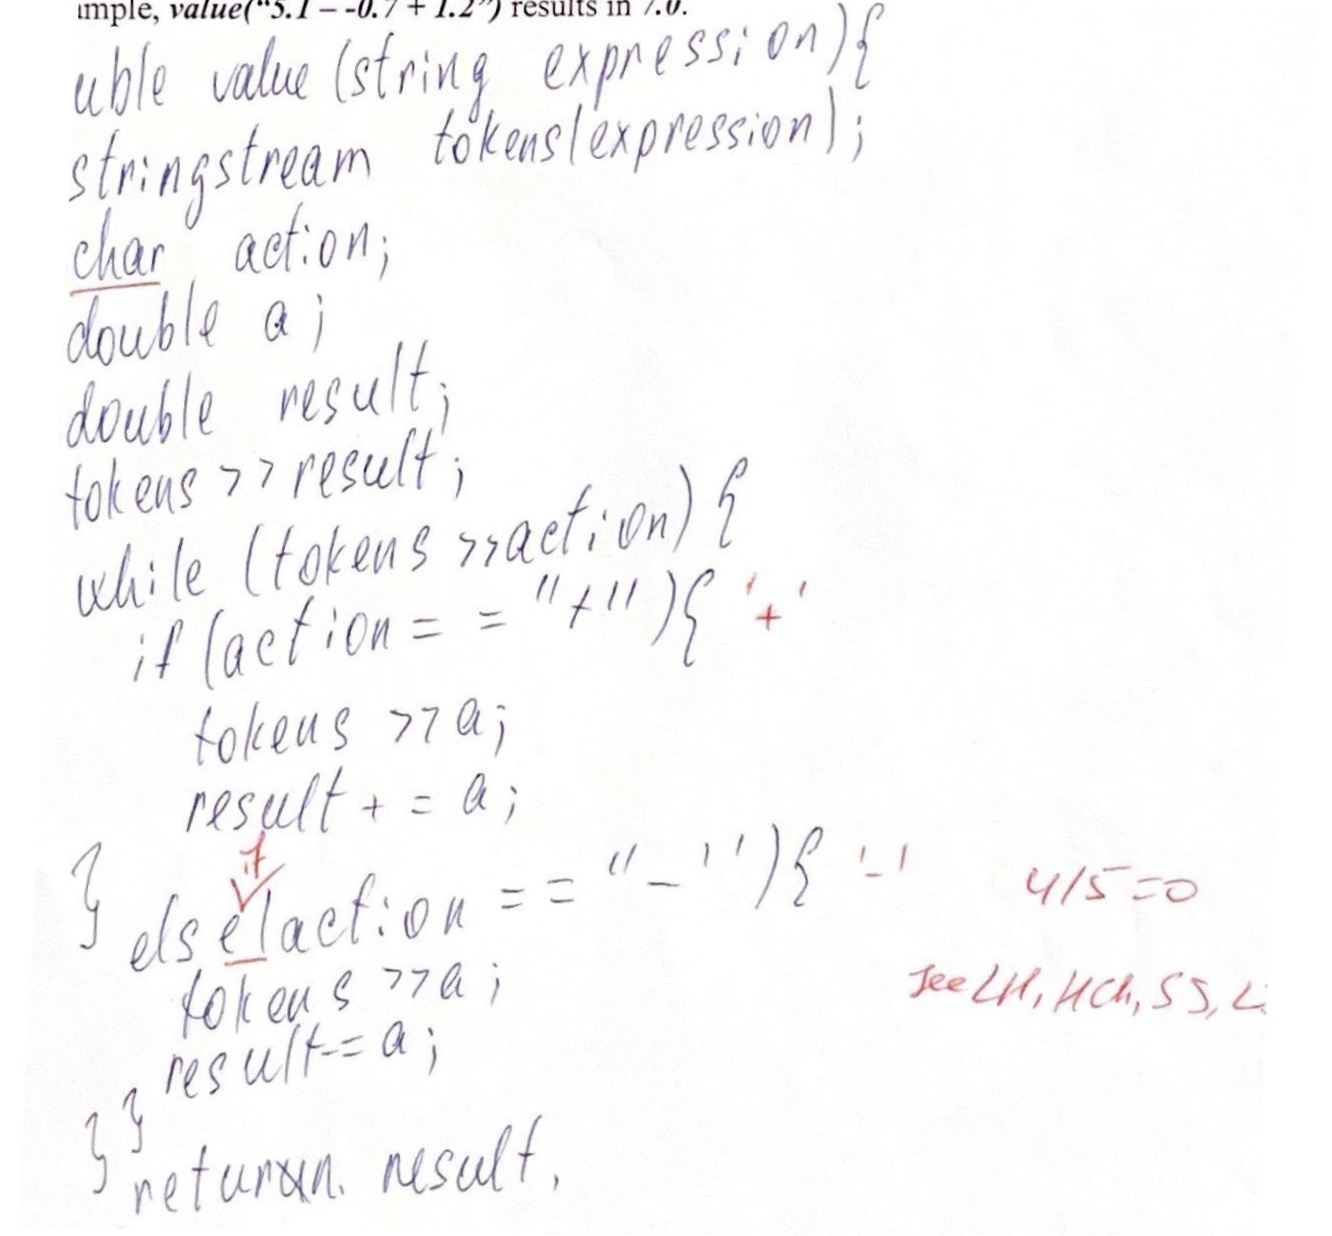 imple, value("5.1 – -0.7 + 1.2") results in 7.0.
uble value (string expression){
stringstream tokens(expression);
char action;
double a;
double result;
tokens >> result;
while (tokens >> action) {
if (action = = "+"){ '+'
tokens >> a;
result + = a;
if
} else (action == "-"){ '-' 4/5=0
tokens >> a;
See LH, HCh, SS, L
result -= a;
}
}
return result,